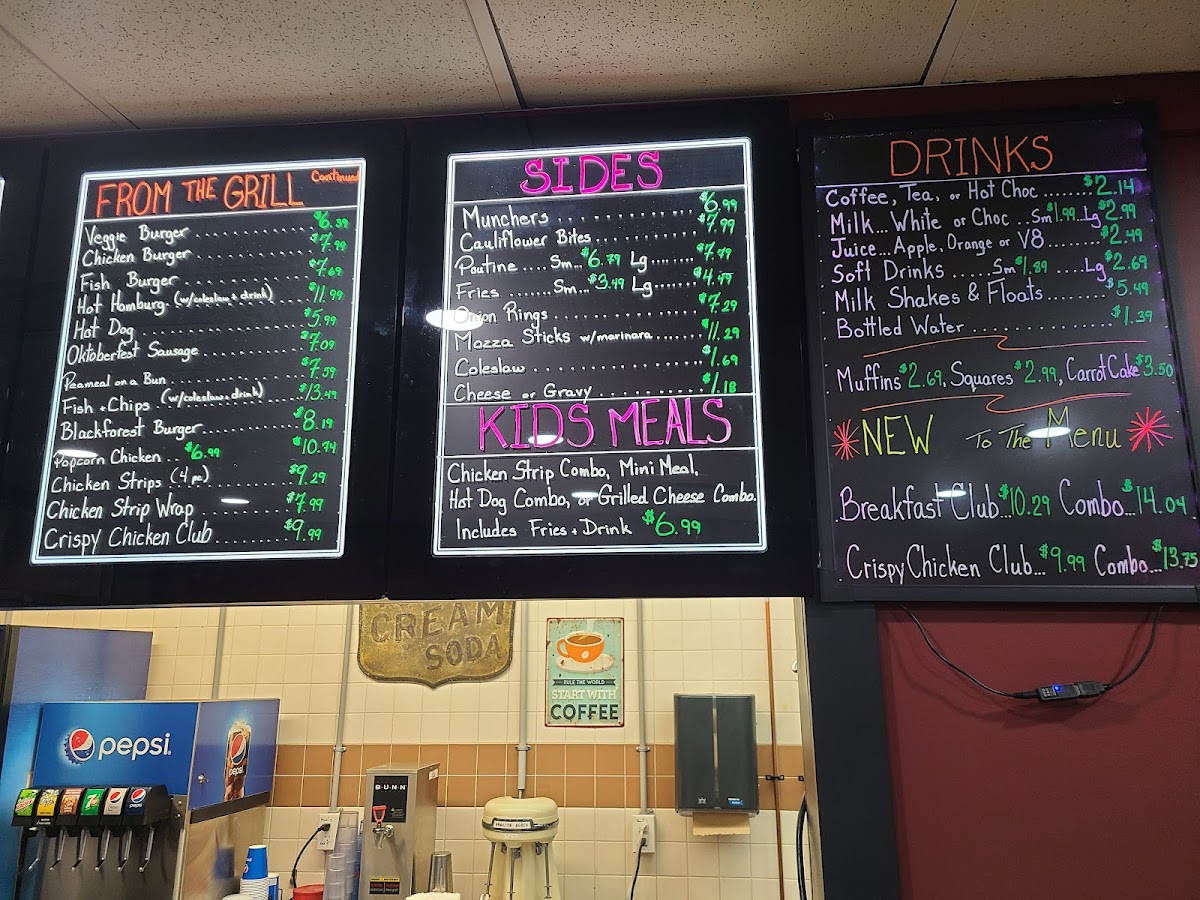 FROM THE GRILL Continued
Veggie Burger $6.39
Chicken Burger $7.99
Fish Burger $7.69
Hot Hamburg (w/coleslaw + drink) $11.99
Hot Dog $5.99
Oktoberfest Sausage $7.09
Peameal on a Bun $7.59
Fish + Chips (w/coleslaw + drink) $13.49
Blackforest Burger $8.19
Popcorn Chicken $6.99 $10.94
Chicken Strips (4 pc) $9.29
Chicken Strip Wrap $7.99
Crispy Chicken Club $9.99
SIDES
Munchers $6.99
Cauliflower Bites $7.99
Poutine Sm $6.79 Lg
Fries Sm $3.49 Lg $4.49
Onion Rings $7.29
Mozza Sticks w/marinara $11.29
Coleslaw $1.69
Cheese or Gravy $1.18
KIDS MEALS
Chicken Strip Combo, Mini Meal,
Hot Dog Combo, or Grilled Cheese Combo.
Includes Fries + Drink $6.99
DRINKS
Coffee, Tea, or Hot Choc $2.14
Milk... White or Choc Sm $1.99 Lg $2.99
Juice... Apple, Orange or V8 $2.49
Soft Drinks Sm $1.89 Lg $2.69
Milk Shakes & Floats $5.49
Bottled Water $1.39
Muffins $2.69, Squares $2.99, Carrot Cake $3.50
NEW To The Menu
Breakfast Club... $10.29 Combo... $14.04
Crispy Chicken Club... $9.99 Combo... $13.75
CREAM
SODA
RULE THE WORLD
START WITH
COFFEE
pepsi
pepsi
BUNN